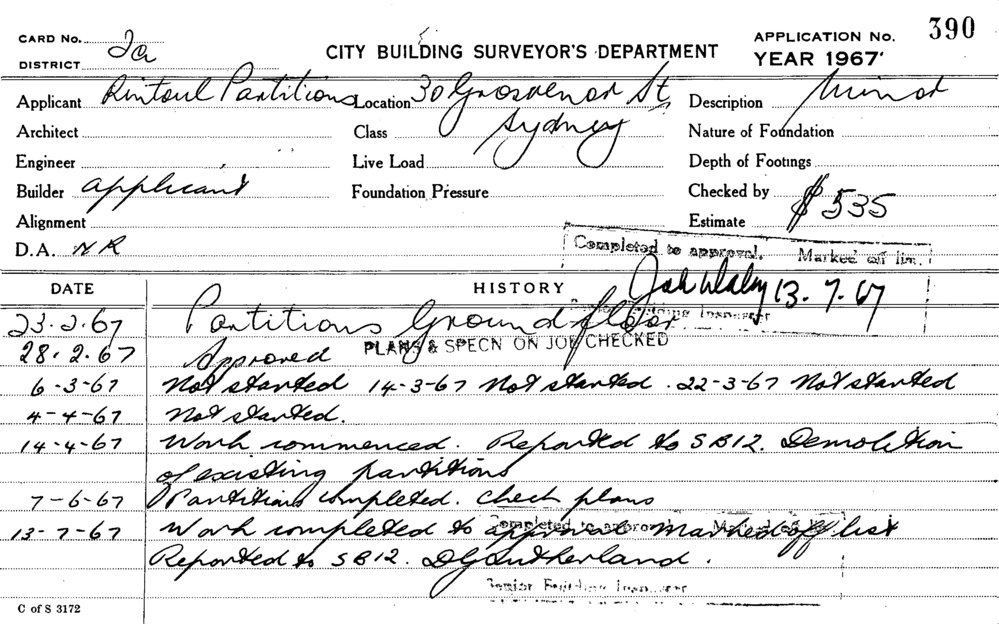 CARD No. 2a
DISTRICT
CITY BUILDING SURVEYOR'S DEPARTMENT
APPLICATION No. 390
YEAR 1967
Applicant Rintoul Partitions Location 30 Grosvenor St, Description Minor
Architect Class Sydney Nature of Foundation
Engineer Live Load Depth of Footings
Builder applicant Foundation Pressure Checked by
Alignment Estimate $535
D.A. NR
Completed to approval. Marked off list.
13.7.67
Building Inspector
DATE HISTORY
23.2.67 Partitions Ground floor
PLANS & SPECN ON JOB CHECKED
28.2.67 Approved
6-3-67 Not started 14-3-67 Not started. 22-3-67 Not started
4-4-67 Not started.
14-4-67 Work commenced. Reported to SB12. Demolition
of existing partitions
7-6-67 Partitions completed. Check plans
13-7-67 Work completed to approval marked off list
Completed to approval Marked off list
Reported to SB12. DG Sutherland.
Senior Building Inspector
C of S 3172